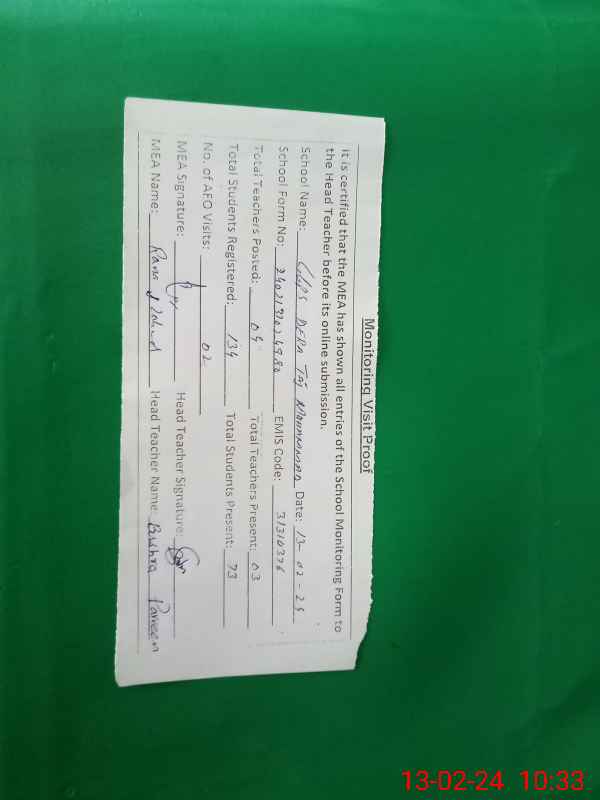 Monitoring Visit Proof
It is certified that the MEA has shown all entries of the School Monitoring Form to
the Head Teacher before its online submission.
School Name: DERA TAJ MOHAMMAD Date: 13-02-24
School Form No: EMIS Code: 31310376
Total Teachers Posted: 04 Total Teachers Present: 03
Total Students Registered: 134 Total Students Present: 73
No. of AEO Visits: 02
MEA Signature: Head Teacher Signature:
MEA Name: Head Teacher Name: Bushra Parveen
13-02-24 10:33